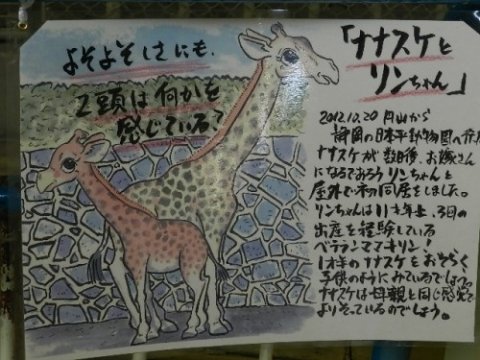 よそよそしさにも、
2頭は何かを
感じている?
「ナナスケと
リンちゃん」
2012.10.20 円山から
静岡の日本平動物園へ
ナナスケが数日後、お嫁さん
になるであろうリンちゃんと
屋外で初同居をしました。
リンちゃんは11才年上、3回の
出産を経験している
ベテランママキリン!
1才半のナナスケをおそらく
子供のようにみているでしょう。
ナナスケは母親と同じ感覚で
よりそっているのでしょう。